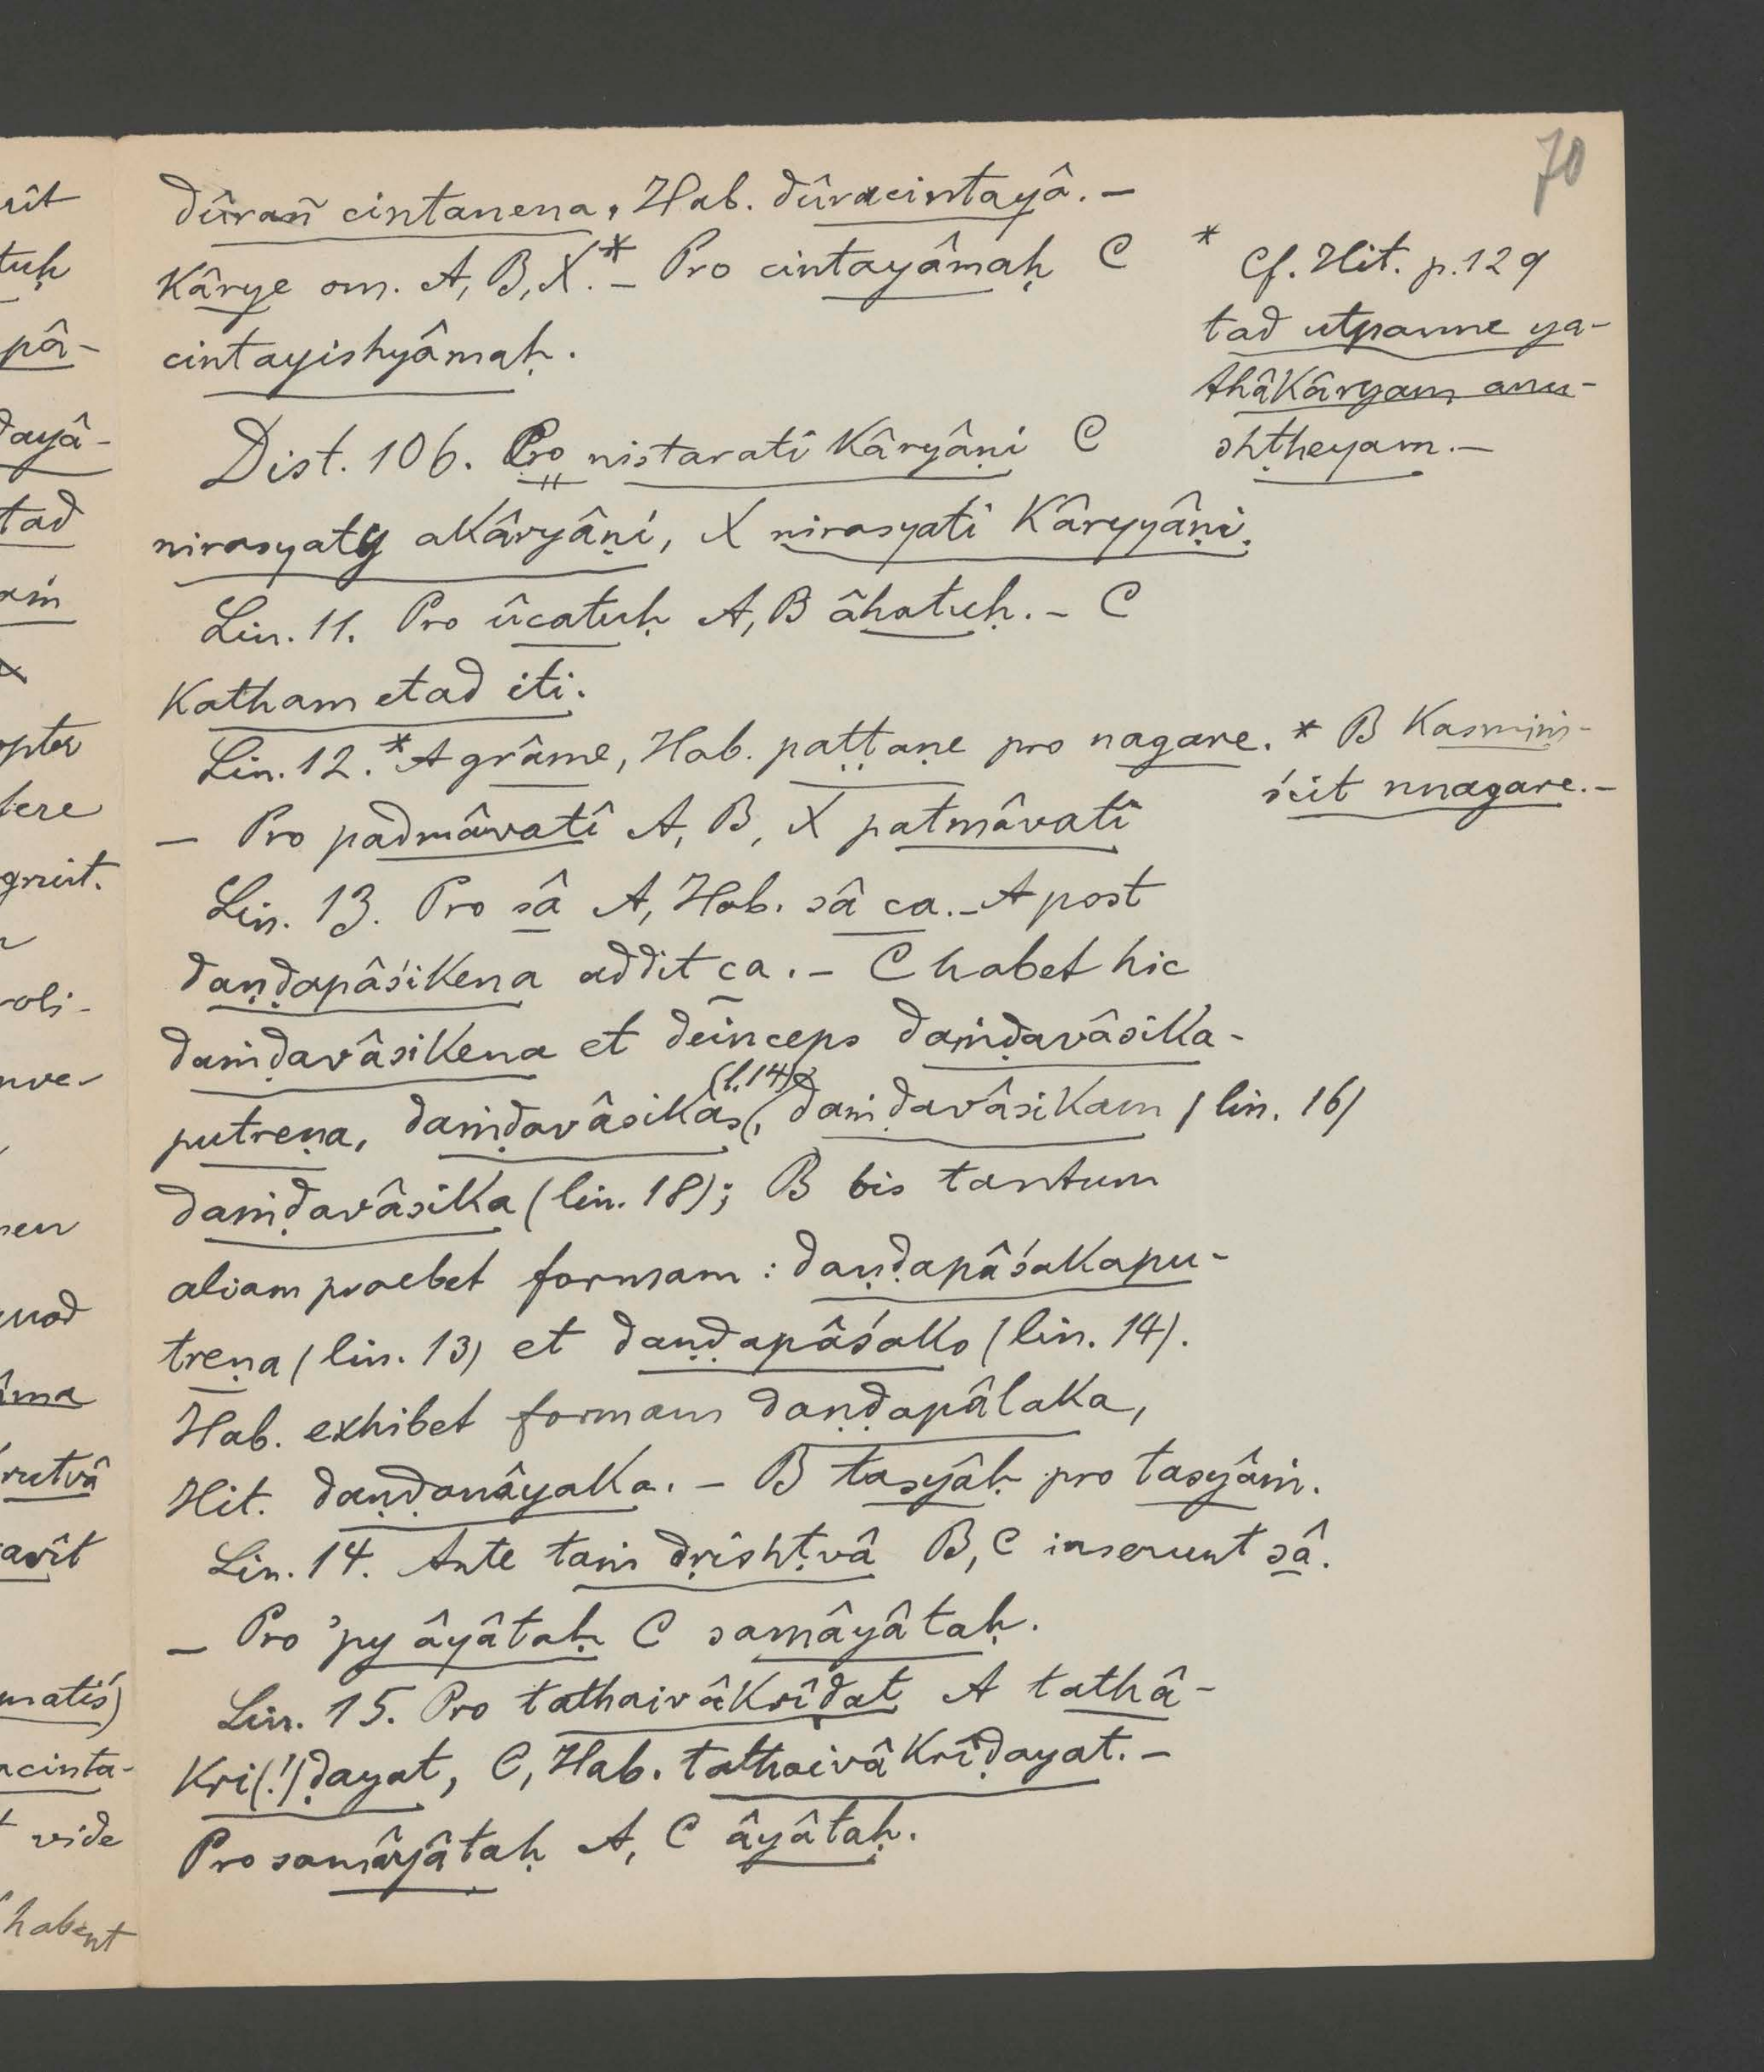 70
dûrañ cintanena, Hab. dûracintayâ. –
kârye om. A, B, X.* – Pro cintayâmaḥ C
cintayishyâmaḥ.
* Cf. Hit. p. 129
tad utpanne ya-
thâkâryam anu-
shṭheyam. –
Dist. 106. Pro nistarati kâryâṇi C
nirasyaty akâryâṇi, X nirasyati kâryyâṇi.
Lin. 11. Pro ûcatuḥ A, B âhatuḥ. – C
katham etad iti.
Lin. 12.* A grâme, Hab. paṭṭaṇe pro nagare.
* B kasmiṁ-
ścit nnagare. –
– Pro padmâvatî A, B, X patmâvatî
Lin. 13. Pro sâ A, Hab. sâ ca. – A post
daṇḍapâśikena addit ca. – C habet hic
daṁḍavâsikena et deinceps daṁḍavâsika-
putreṇa, daṁḍavâsikâs (l. 14), daṁḍavâsikam (lin. 16)
daṁḍavâsika (lin. 18); B bis tantum
aliam praebet formam: daṇḍapâśakapu-
treṇa (lin. 13) et daṇḍapâśako (lin. 14).
Hab. exhibet formam daṇḍapâlaka,
Hit. daṇḍanâyaka. – B tasyâḥ pro tasyâṁ.
Lin. 14. Ante taṁ dṛishṭvâ B, C inserunt sâ.
– Pro 'py âyâtaḥ C samâyâtaḥ.
Lin. 15. Pro tathaivâkrîḍat A tathâ-
kri(!)ḍayat, C, Hab. tathaivâkrîḍayat. –
Pro samâyâtaḥ A, C âyâtaḥ.